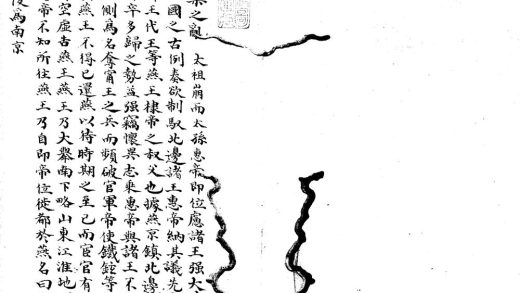 之亂 太祖崩而太孫惠帝即位慮諸王强大
國之古例奏欲制馭北邊諸王惠帝納其議先
王代王等燕王棣帝之叔父也據燕京鎮北邊
卒多歸之勢益强竊懷異志乘惠帝與諸王不
側爲名奪甯王之兵而頻破官軍帝使鐵鉉等
燕王不得已還燕以待時期之至已而宦官有
空虛告燕王燕王乃大擧南下略山東江淮地
帝不知所往燕王乃自即帝位徙都於燕名曰
陵爲南京